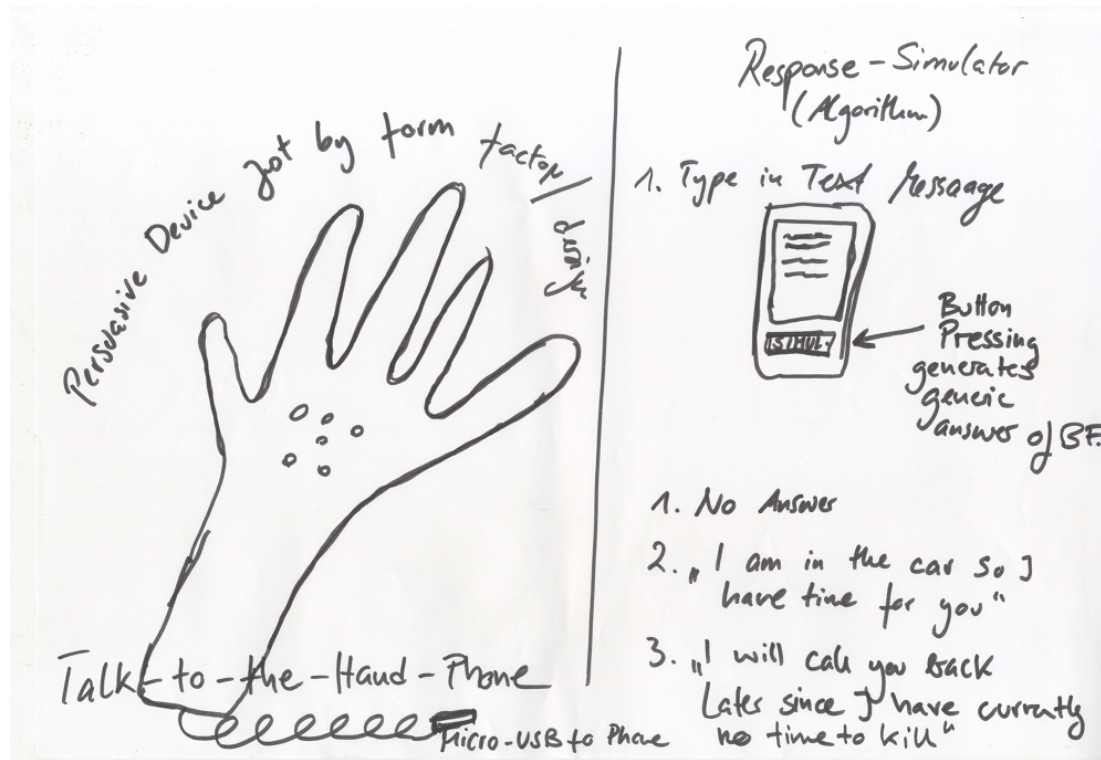 Persuasive Device just by form factor /
Talk-to-the-Hand-Phone
Micro-USB to Phone
Response-Simulator
(Algorithm)
1. Type in Text Message
SIMUL.
Button
Pressing
generates
generic
answer of BF.
1. No Answer
2. „I am in the car so I
have time for you“
3. „I will call you back
later since I have currently
no time to kill“